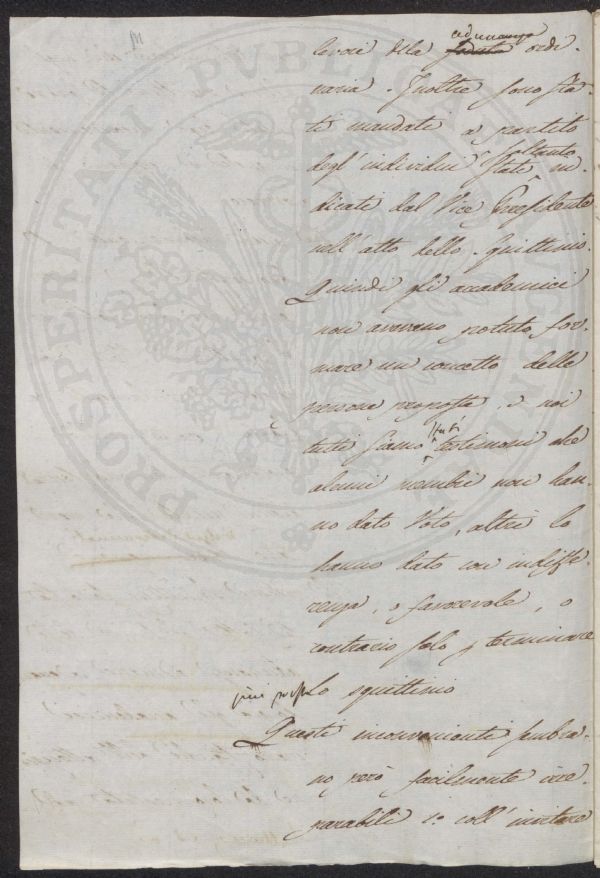 PROSPERITATI PUBLICAE AUGENDAE
adunanza
levoci della seduta ordi-
naria. Inoltre sono sta-
ti mandati a partito
soltanto
degl' individui stati in-
dicati dal Vice Presidente
nell' atto dello squittinio.
Quindi gli accademici
non avevano potuto for-
mare un concetto delle
persone proposte, e noi
stati
tutti siamo testimoni che
alcuni membri non han-
no dato Voto, altri lo
hanno dato con indiffe-
renza, o favorevole, o
contrario solo p terminare
più presto lo squittinio
Questi inconvenienti sembra-
no però facilmente irre-
parabili 1.o coll' invitare